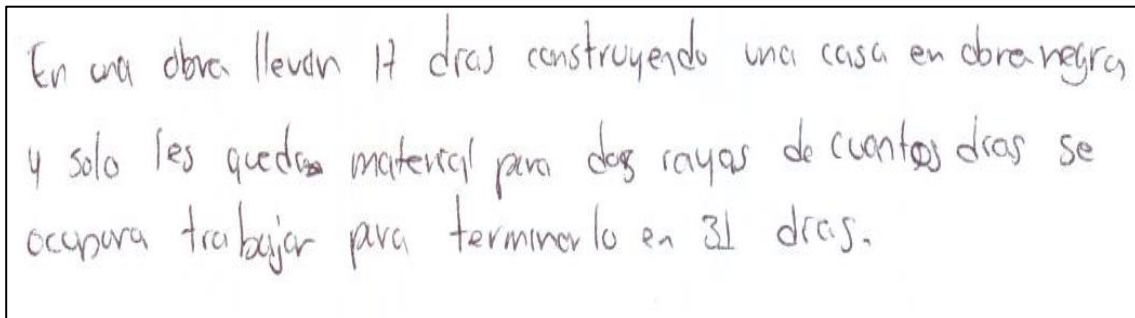 En una obra llevan 17 dias construyendo una casa en obra negra
y solo les queda material para dos rayas de cuantos dias se
ocupara trabajar para terminarlo en 31 dias.